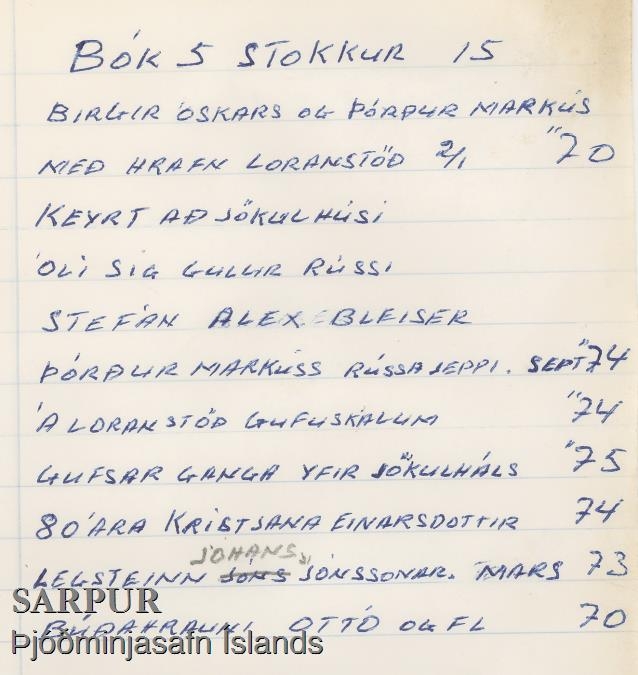 BÓK 5 STOKKUR 15
BIRGIR ÓSKARS OG ÞÓRÐUR MARKÚS
MEÐ HRAFN LORANSTÖÐ 2/1 "70
KEYRT AÐ JÖKULHÚSI
ÓLI SIG GULUR RÚSSI
STEFÁN ALEX BLEISER
ÞÓRÐUR MARKÚSS RÚSSAJEPPI. SEPT "74
Á LORANSTÖÐ GUFUSKÁLUM "74
GUFSAR GANGA YFIR JÖKULHÁLS "75
80 ÁRA KRISTJANA EINARSDOTTIR 74
JÓHANS
LEGSTEINN JÓNS JÓNSSONAR. MARS 73
BÚÐAHRAUNI OTTÓ OG FL 70
SARPUR
Þjóðminjasafn Íslands